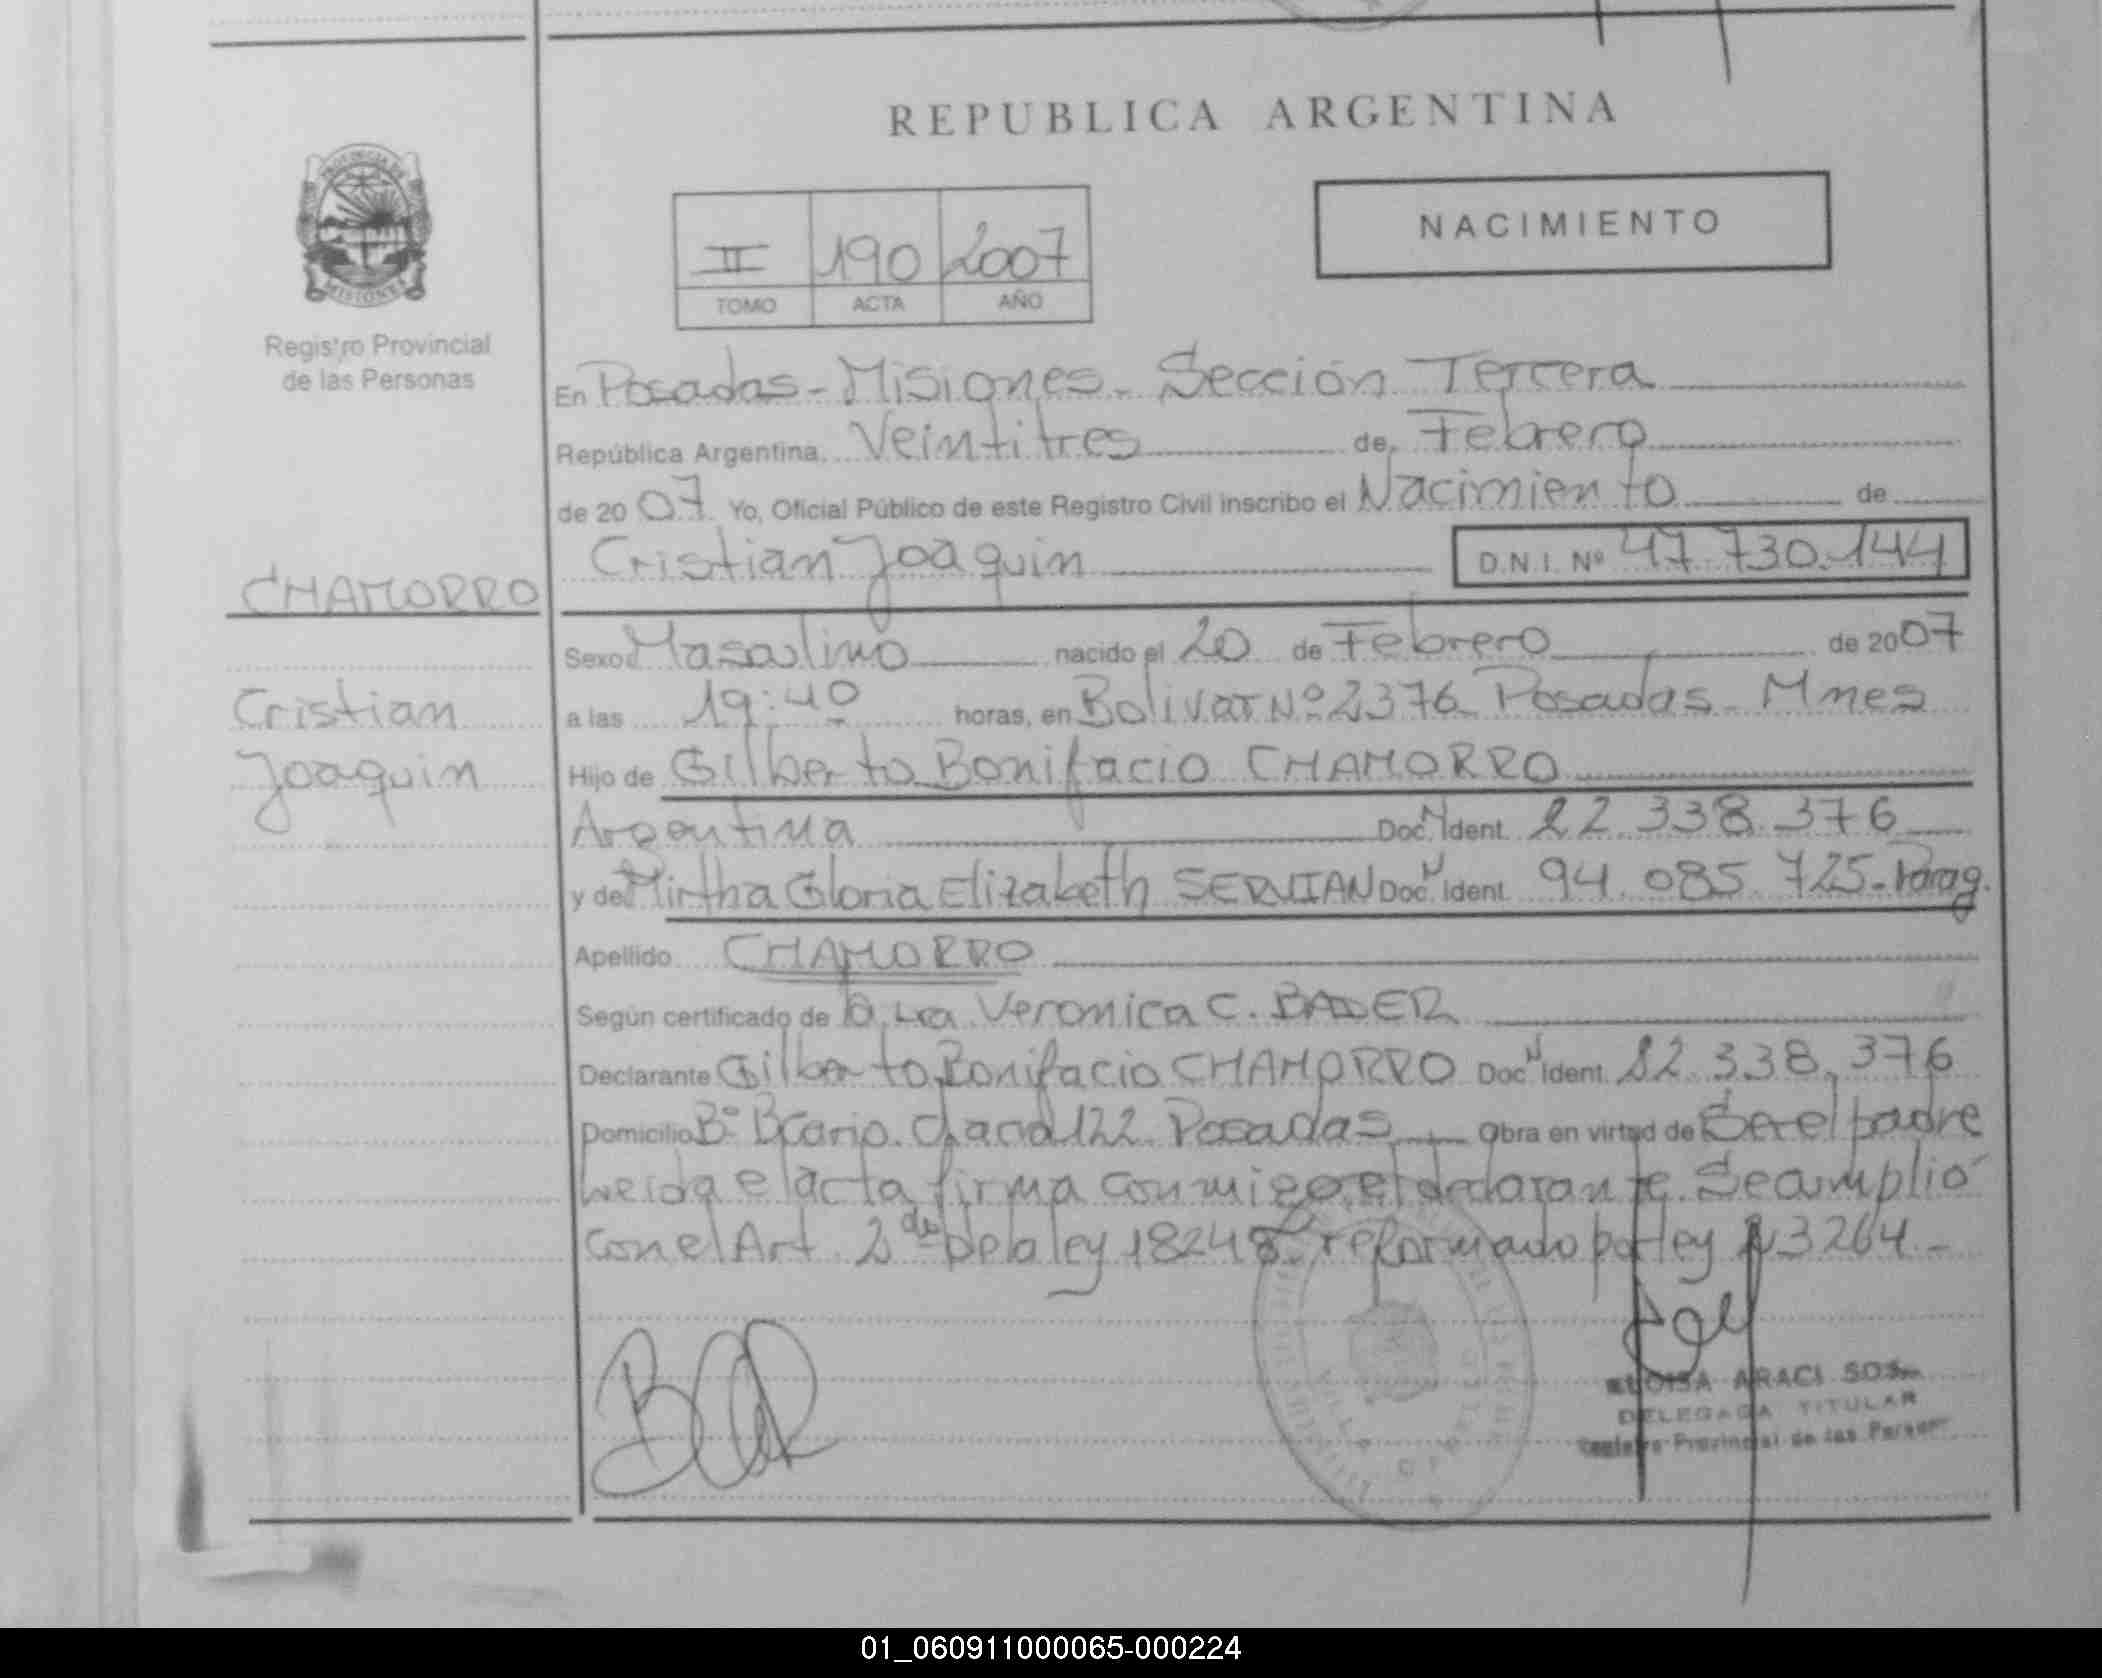 REPUBLICA ARGENTINA
NACIMIENTO
II 190 2007
TOMO ACTA AÑO
PROVINCIA DE
MISIONES
Registro Provincial
de las Personas
En Posadas - Misiones - Sección Tercera
República Argentina, Veintitres de, Febrero
de 2007 Yo, Oficial Público de este Registro Civil inscribo el Nacimiento de
Cristian Joaquin D.N.I. Nº 47 730.144
CHAMORRO
Cristian
Joaquin
Sexo Masculino nacido el 20 de Febrero de 2007
a las 19:40 horas, en Bolivar Nº 2376 Posadas - Mnes
Hijo de Gilberto Bonifacio CHAMORRO
Argentina Doc. N Ident. 22.338.376
y de Mirtha Gloria Elizabeth SERVIAN Doc. N Ident. 94.085.725 - Parag.
Apellido CHAMORRO
Según certificado de Veronica C. BADER
Declarante Gilberto Bonifacio CHAMORRO Doc N Ident. 22.338.376
Domicilio Bº Chacra 122 Posadas Obra en virtud de Ser el padre
Leida el acta firma conmigo el declarante. Se cumplió
con el Art. 2 de la ley 18248 reformado por ley 23264 -
ELOISA ARACI SOSA
DELEGADA TITULAR
Registro Provincial de las Personas
01_060911000065-000224